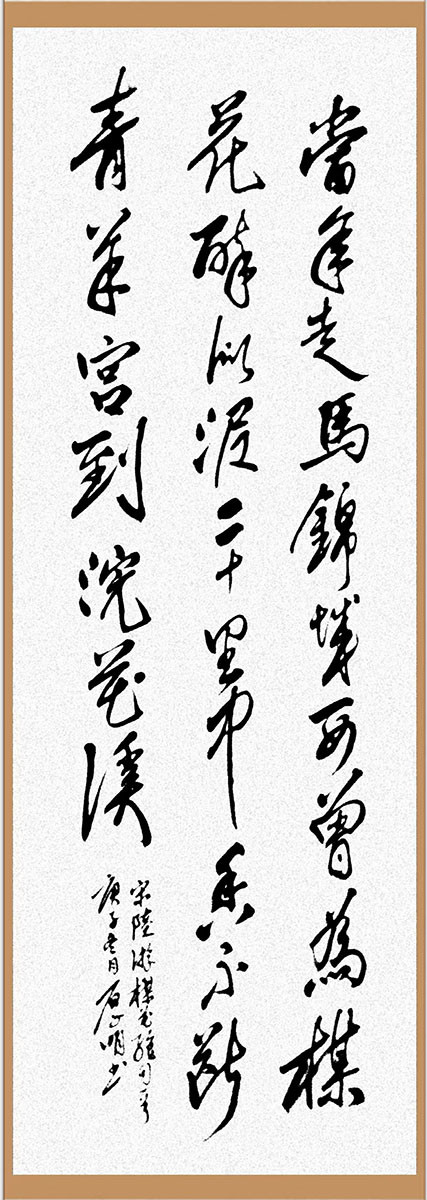 當年走馬錦城西曾為楳
花醉似泥二十里中香不斷
青羊宮到浣花溪
宋陸游楳花絕句
庚子 月 石 明书